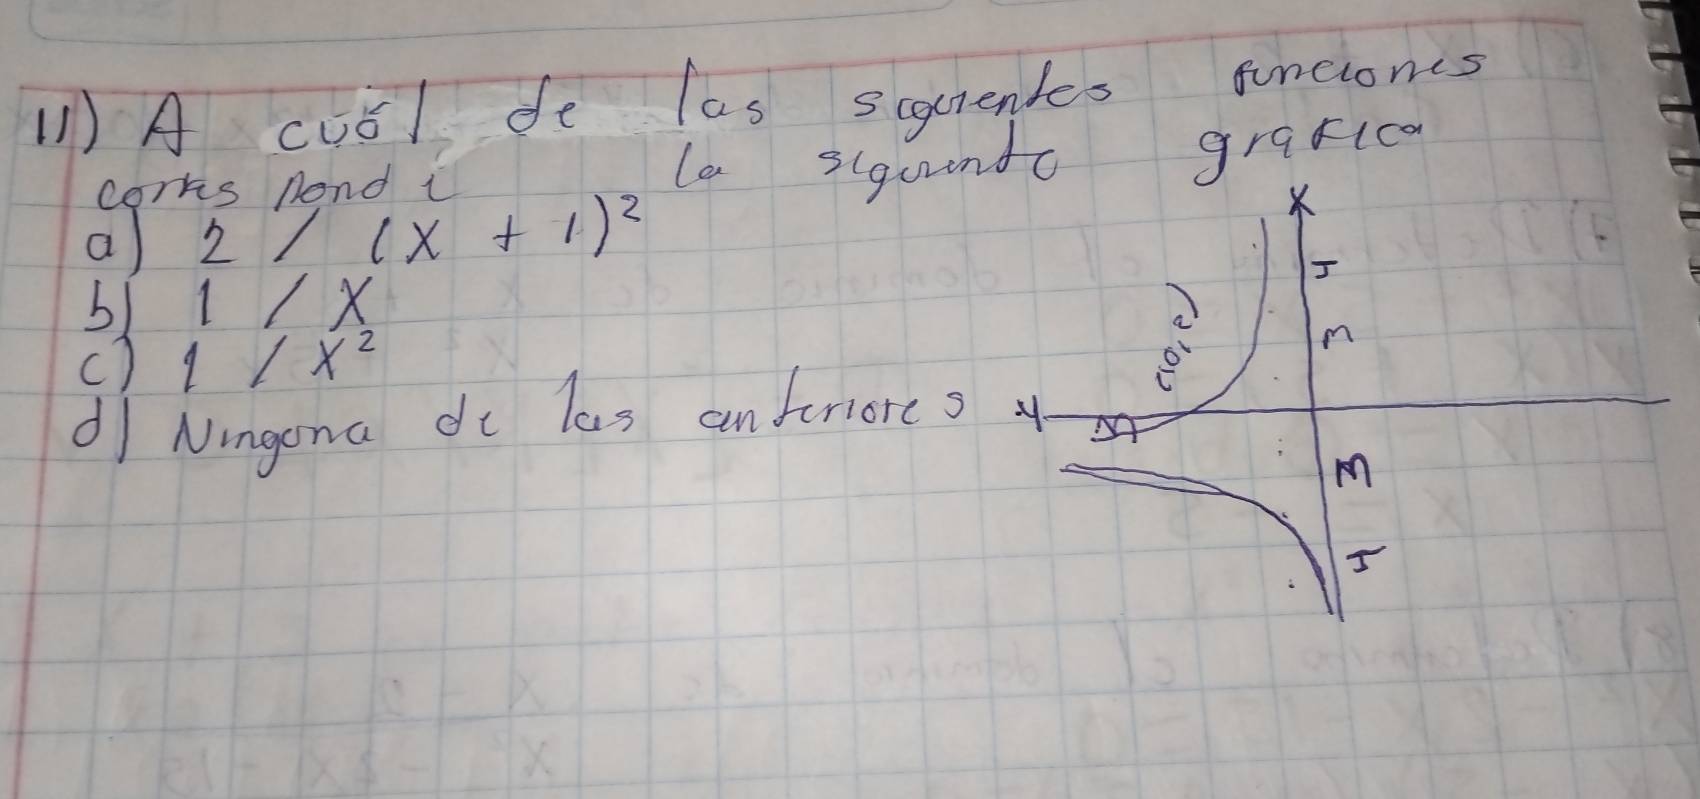 11) A cuál de las siguientes funciones
corresponde la siguiente grafica
a) 2 / (x + 1)²
b) 1 / x
c) 1 / x²
d) Ninguna de las anteriores
x
y
(0,2)